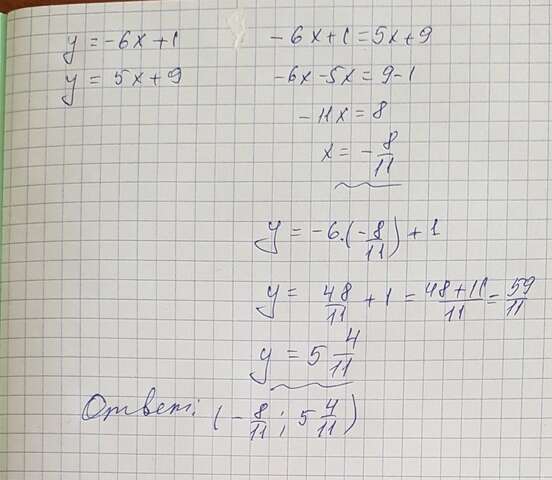 y = -6x + 1
y = 5x + 9
-6x + 1 = 5x + 9
-6x - 5x = 9 - 1
-11x = 8
x = -8/11
y = -6·(-8/11) + 1
y = 48/11 + 1 = 48+11/11 = 59/11
y = 5 4/11
Ответ: (-8/11; 5 4/11)